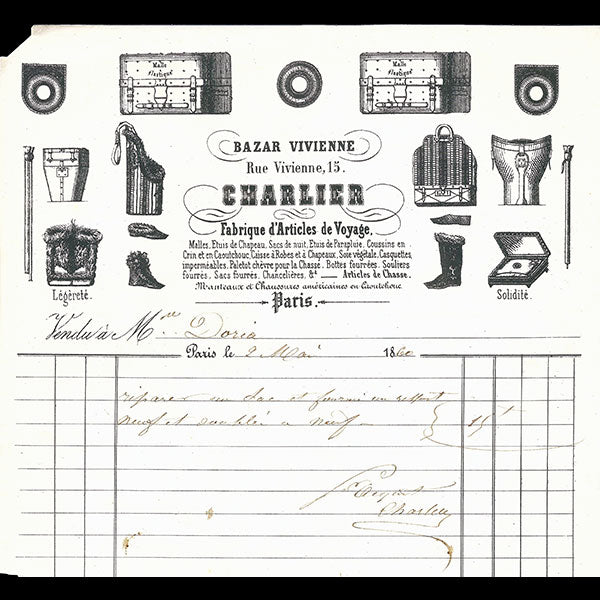 Malle
Elastique
Malle
Elastique
BAZAR VIVIENNE
Rue Vivienne, 15.
CHARLIER
Fabrique d'Articles de Voyage,
Malles, Etuis de Chapeau, Sacs de nuit, Etuis de Parapluie, Coussins en
Crin et en Caoutchouc, Caisse à Robes et à Chapeaux, Soie végétale, Casquettes,
imperméables, Paletot chèvre pour la Chasse. Bottes fourrées, Souliers
fourrés, Sacs fourrés, Chancelières, &a — Articles de Chasse.
Manteaux et Chaussures américaines en Caoutchouc
Légèreté.
Solidité.
Paris.
Vendu à Mme Doria
Paris le 2 Mai 1860
réparer un sac et fourni un ressort
neuf et doublé a neuf 15f
Charlier